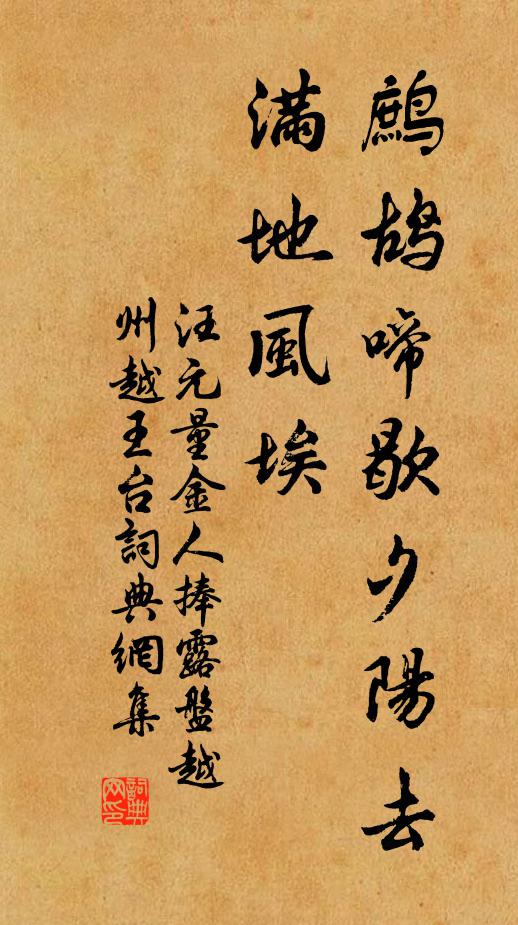 鷓鴣啼歇夕陽去
滿地風埃
汪元量金人捧露盤越
州越王台詞典網集
詞典网印